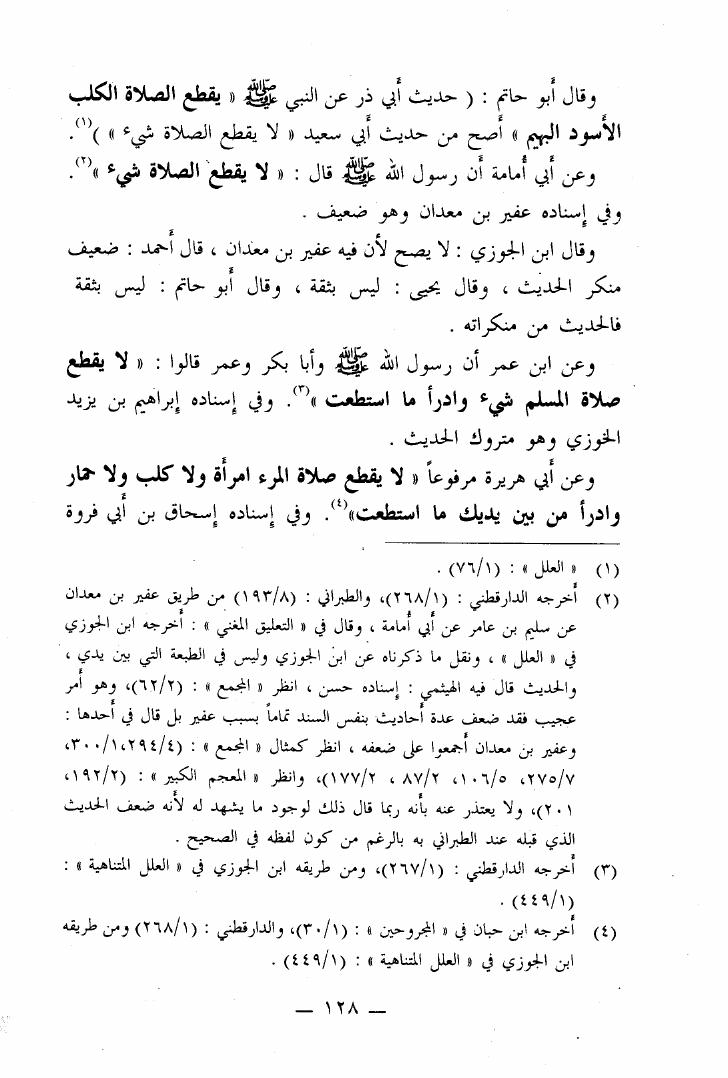 وقال أَبو حاتم : ( حديث أَبي ذر عن النبي ﷺ « يقطع الصلاة الكلب
الأَسود البهيم » أَصح من حديث أَبي سعيد « لا يقطع الصلاة شيء » )(١).
وعن أَبي أُمامة أَن رسول الله ﷺ قال : « لا يقطع الصلاة شيء »(٢).
وفي إِسناده عفير بن معدان وهو ضعيف .
وقال ابن الجوزي : لا يصح لأَن فيه عفير بن معدان ، قال أَحمد : ضعيف
منكر الحديث ، وقال يحيى : ليس بثقة ، وقال أَبو حاتم : ليس بثقة
فالحديث من منكراته .
وعن ابن عمر أَن رسول الله ﷺ وأَبا بكر وعمر قالوا : « لا يقطع
صلاة المسلم شيء وادرأ ما استطعت »(٣). وفي إِسناده إِبراهيم بن يزيد
الخوزي وهو متروك الحديث .
وعن أَبي هريرة مرفوعاً « لا يقطع صلاة المرء امرأة ولا كلب ولا حمار
وادرأ من بين يديك ما استطعت»(٤). وفي إِسناده إِسحاق بن أَبي فروة
(١) « العلل » : (٧٦/١) .
(٢) أَخرجه الدارقطني : (٢٦٨/١)، والطبراني : (١٩٣/٨) من طريق عفير بن معدان
عن سليم بن عامر عن أَبي أمامة ، وقال في « التعليق المغني » : أَخرجه ابن الجوزي
في « العلل » ، ونقل ما ذكرناه عن ابن الجوزي وليس في الطبعة التي بين يدي ،
والحديث قال فيه الهيثمي : إِسناده حسن ، انظر « المجمع » : (٦٢/٢)، وهو أَمر
عجيب فقد ضعف عدة أَحاديث بنفس السند تماماً بسبب عفير بل قال في أَحدها :
وعفير بن معدان أَجمعوا على ضعفه ، انظر كمثال « المجمع » : (٢٩٤/٤، ٣٠٠/١،
٢٧٥/٧، ١٠٦/٥، ٨٧/٢ ، ١٧٧/٢)، وانظر « المعجم الكبير » : (١٩٢/٢،
٢٠١)، ولا يعتذر عنه بأَنه ربما قال ذلك لوجود ما يشهد له لأَنه ضعف الحديث
الذي قبله عند الطبراني به بالرغم من كون لفظه في الصحيح .
(٣) أَخرجه الدارقطني : (٢٦٧/١)، ومن طريقه ابن الجوزي في « العلل المتناهية » :
(٤٤٩/١) .
(٤) أَخرجه ابن حبان في « المجروحين » : (٣٠/١)، والدارقطني : (٢٦٨/١) ومن طريقه
ابن الجوزي في « العلل المتناهية » : (٤٤٩/١) .
— ١٢٨ —